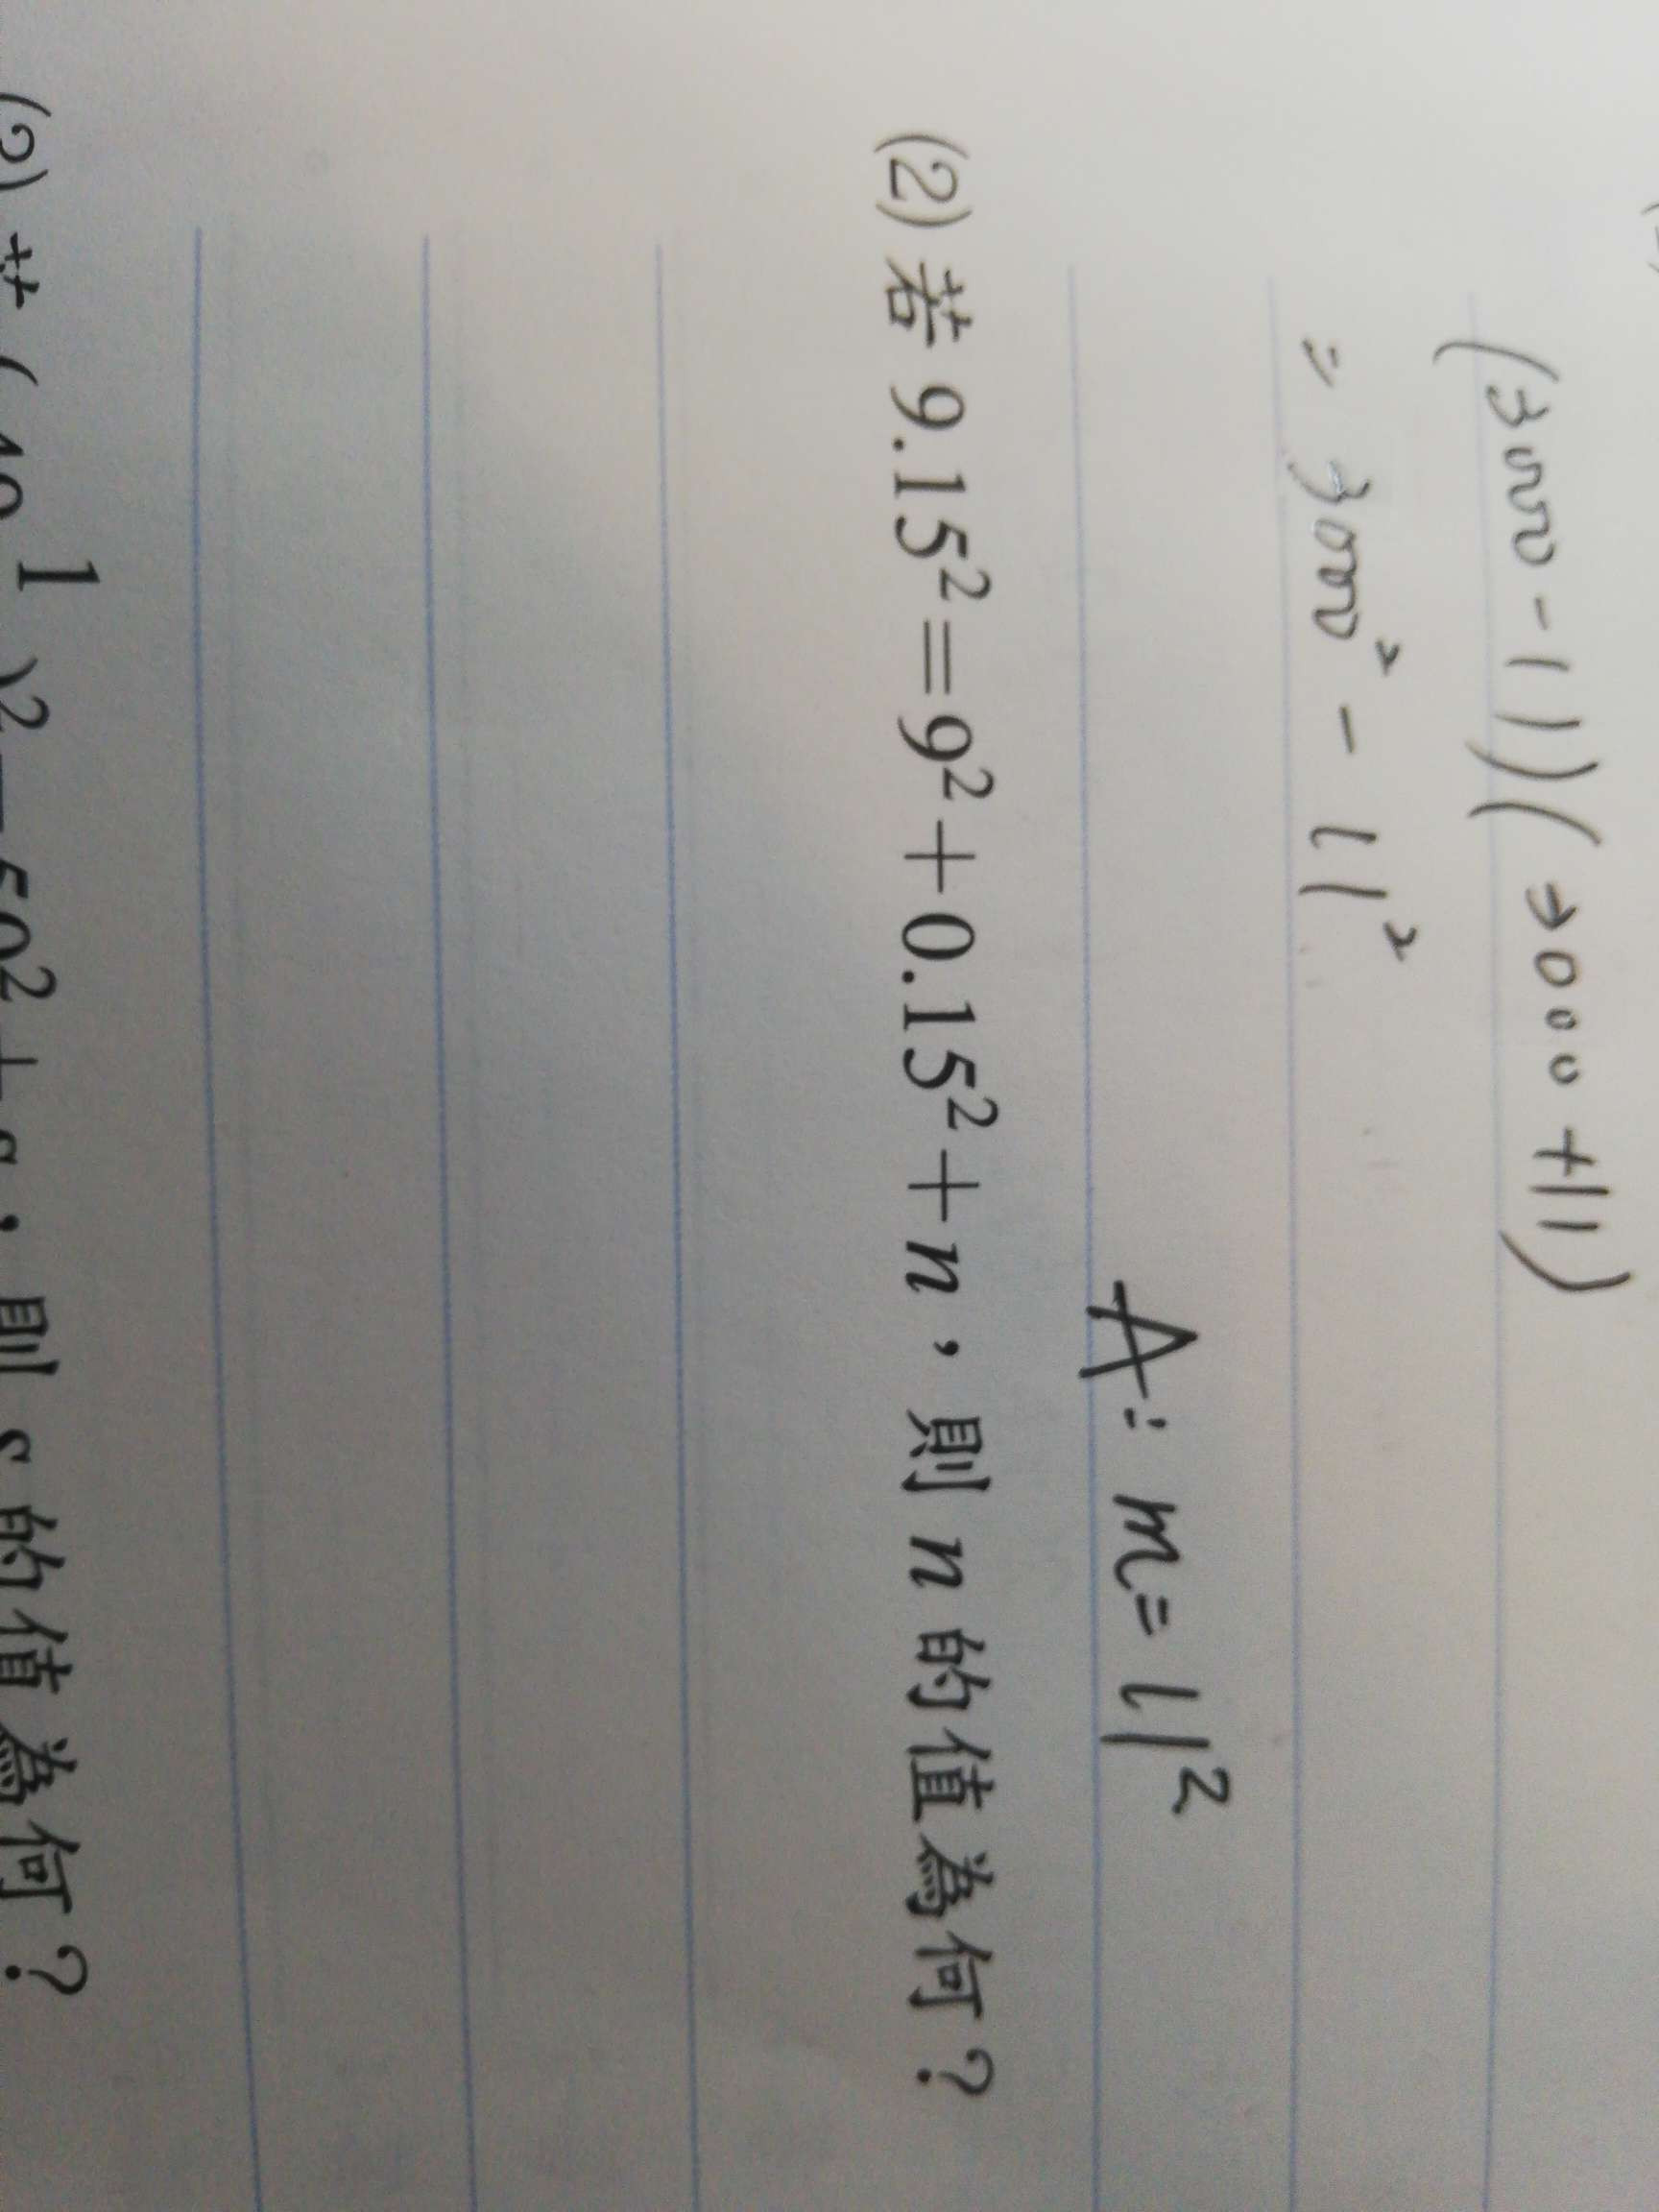 (3000-11)(3000+11)
=3000²-11²
A: m=11²
(2) 若 9.15²=9²+0.15²+n，則 n 的值為何？
(2) 若 ( 1 )²=50²+s，則 s 的值為何？